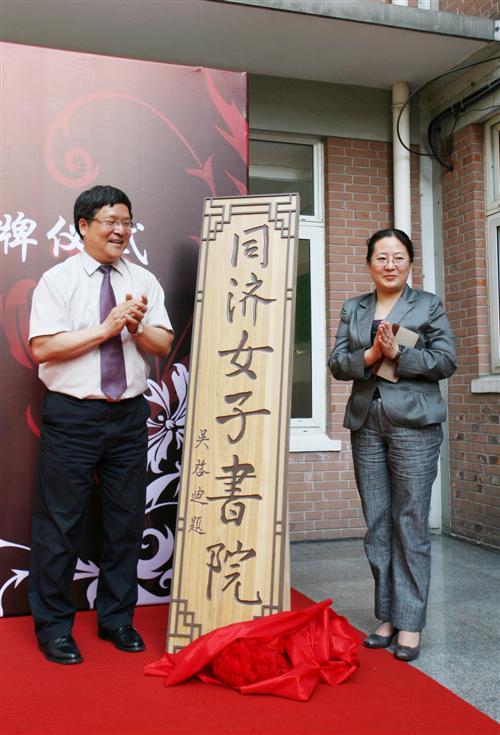 牌仪式
同济女子書院
吴啓迪題